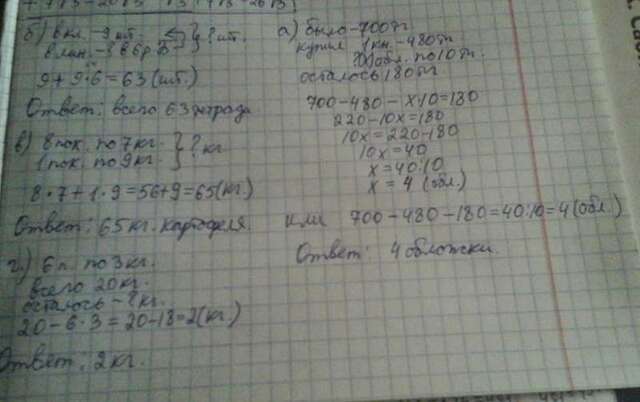 б) в кл. - 9 шт. } ? шт.
в лин. - в 6 р. Б
9 + 9·6 = 63 (шт.)
Ответ: всего 63 тетради
в) 8 пак. по 7 кг. } ? кг.
1 пак. по 9 кг.
8·7 + 1·9 = 56 + 9 = 65 (кг.)
Ответ: 65 кг. картофеля.
г.) 6 п. по 3 кг.
всего 20 кг.
осталось - ? кг.
20 - 6·3 = 20 - 18 = 2 (кг.)
Ответ: 2 кг.
а) было - 700 тг
купил 1 кн. - 480 тг
обл. по 10 тг.
осталось 180 тг
700 - 480 - х·10 = 180
220 - 10х = 180
10х = 220 - 180
10х = 40
х = 40:10
х = 4 (обл.)
или 700 - 480 - 180 = 40:10 = 4 (обл.)
Ответ: 4 обложки.